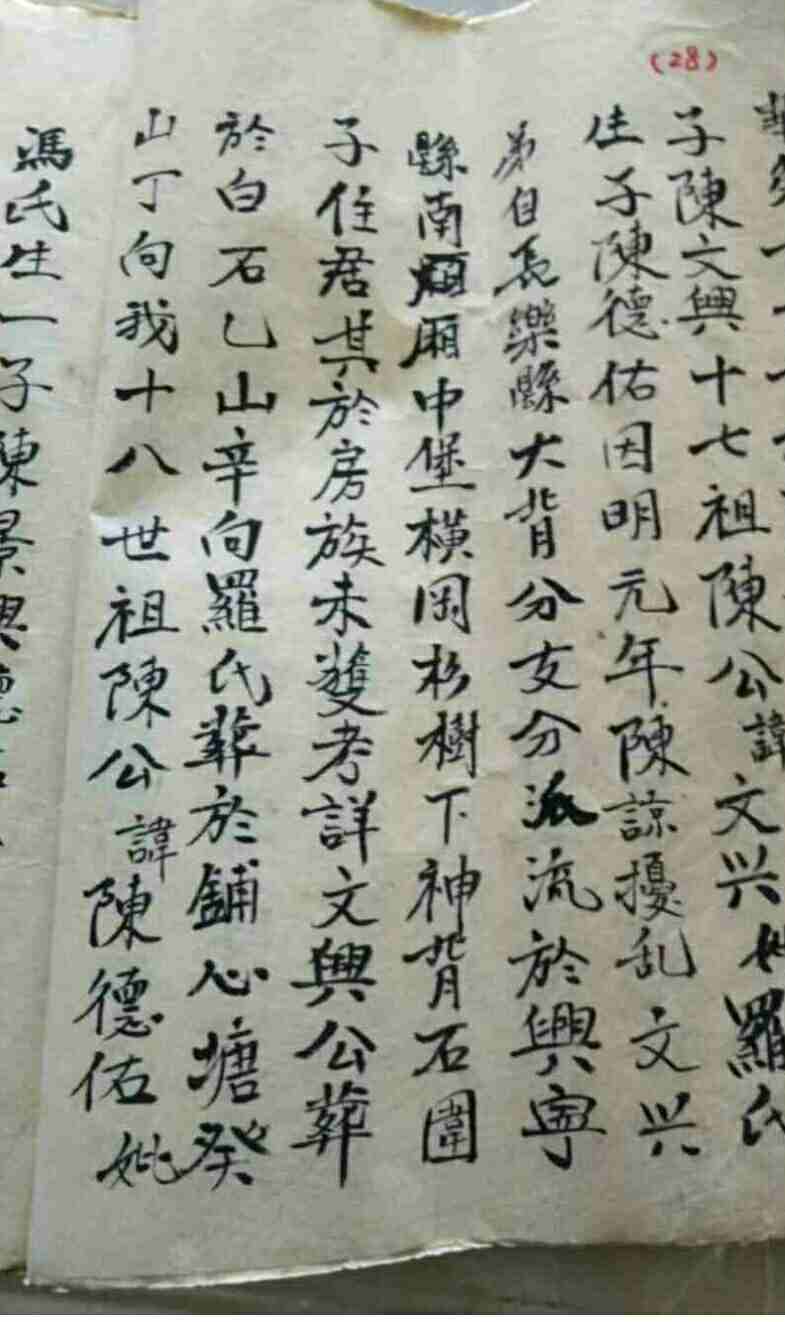 (28)
子陳文興十七祖陳公諱文兴妣羅氏
生子陳德佑因明元年陳諒擾乱文兴
弟自長樂縣大背分支分派流於興寧
縣南廂中堡横岡杉樹下神背石圍
子住居其於房族未獲考詳文興公葬
於白石乙山辛向羅氏葬於鋪心塘癸
山丁向我十八世祖陳公諱陳德佑妣
馮氏生一子陳景興德